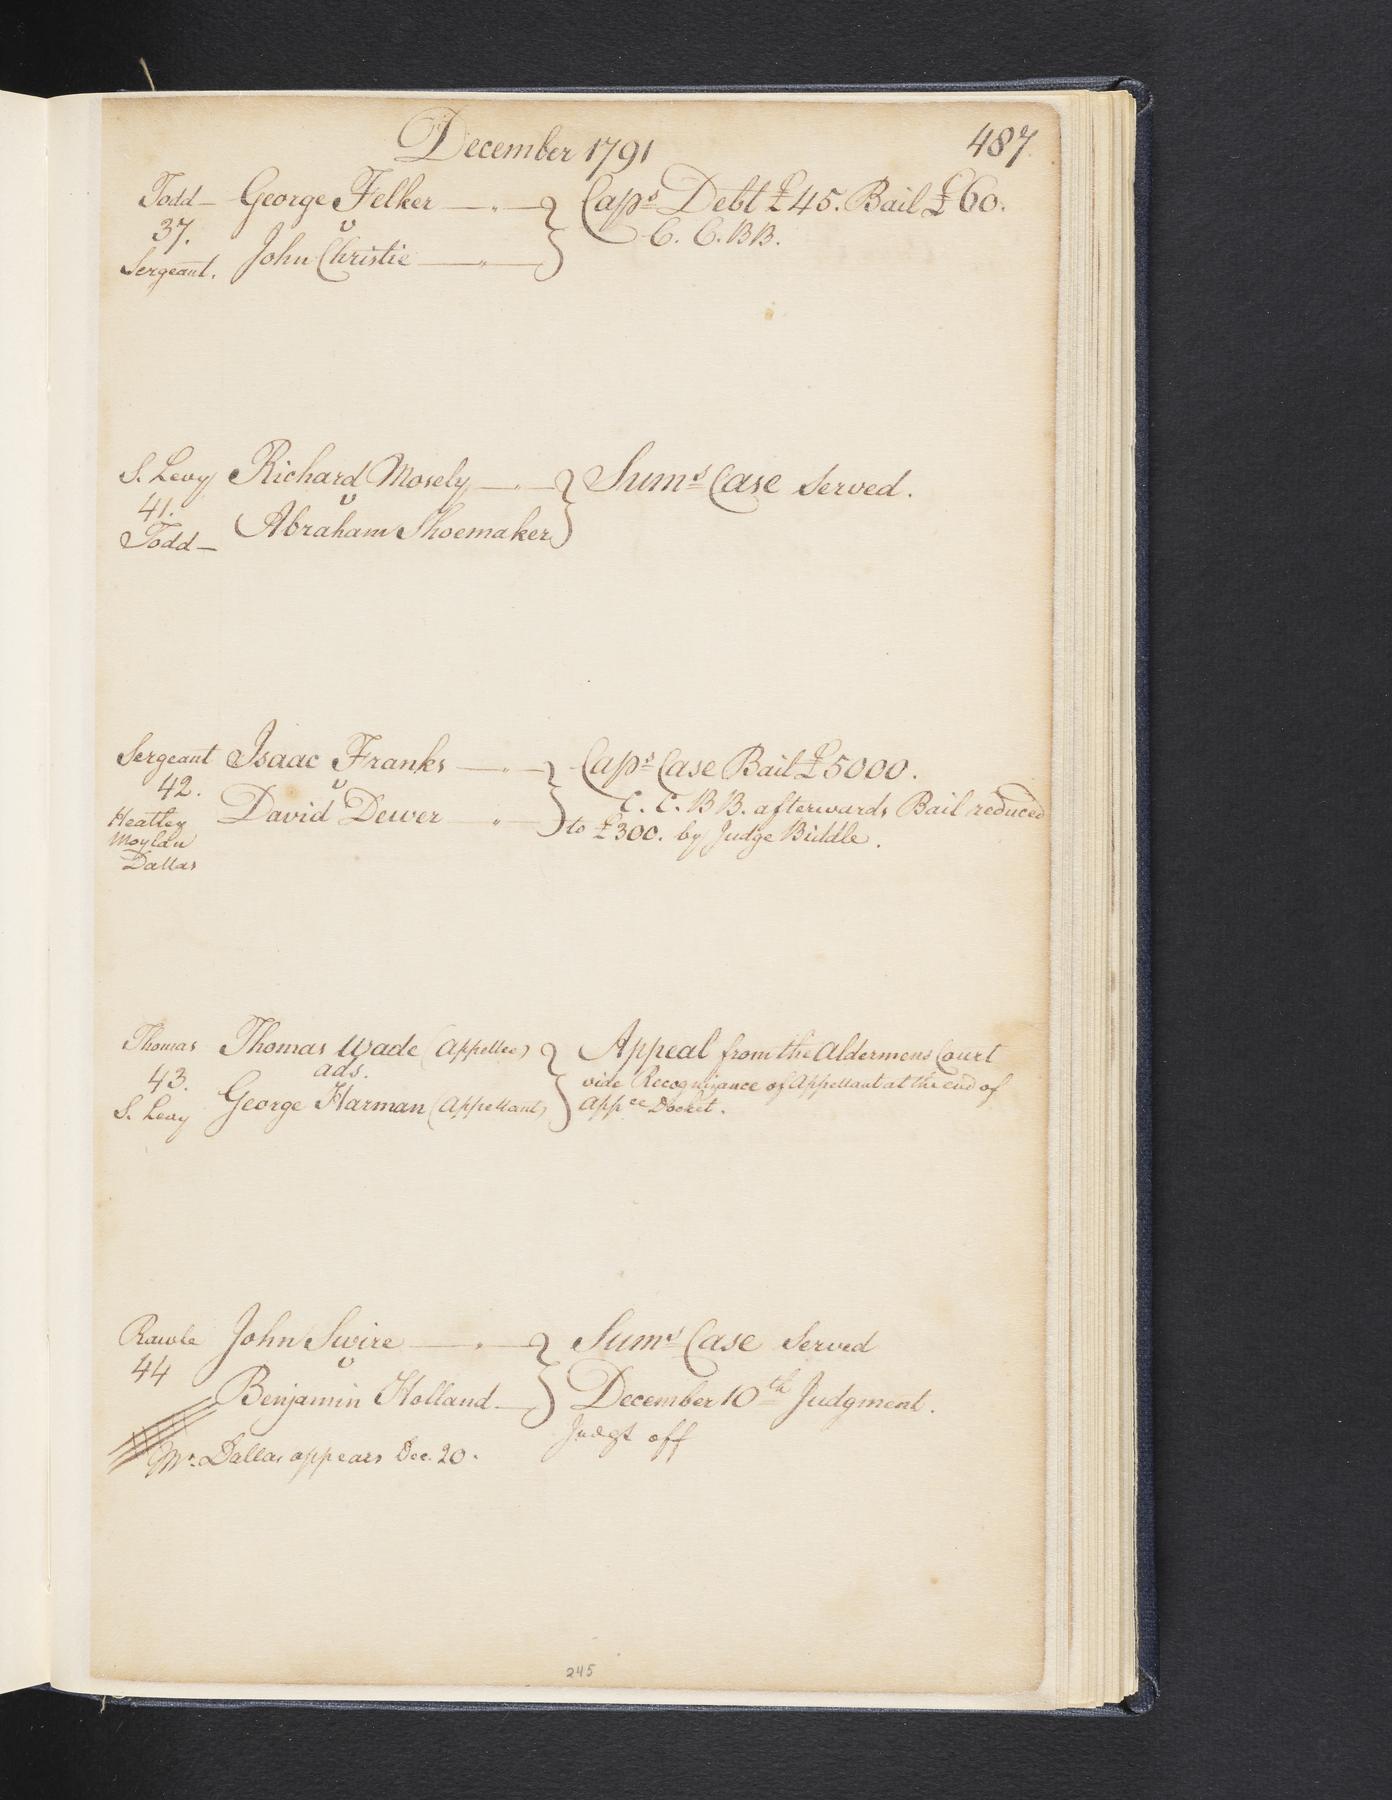 December 1791
487.
Todd— George Felker —"— } Caps Debt £45. Bail £60.
37. v C. C. BB.
Sergeant. John Christie —"—
S. Levy Richard Mosely —"— } Sums Case Served.
41. v
Todd— Abraham Shoemaker
Sergeant Isaac Franks —"— } Caps Case Bail £5000.
42. v C. C. BB. afterwards Bail reduced
Heatley David Dewer —"— to £300. by Judge Biddle.
Moylan
Dallas
Thomas Thomas Wade (Appellee) } Appeal from the Aldermens Court
43. ads. vide Recognizance of Appellant at the end of
S. Levy George Harman (Appellant) Appce Docket.
Rawle John Swire —"— } Sums Case Served
44 v
Benjamin Holland — December 10th Judgment.
Judgt off
Mr. Dallas appears Dec. 20.
245